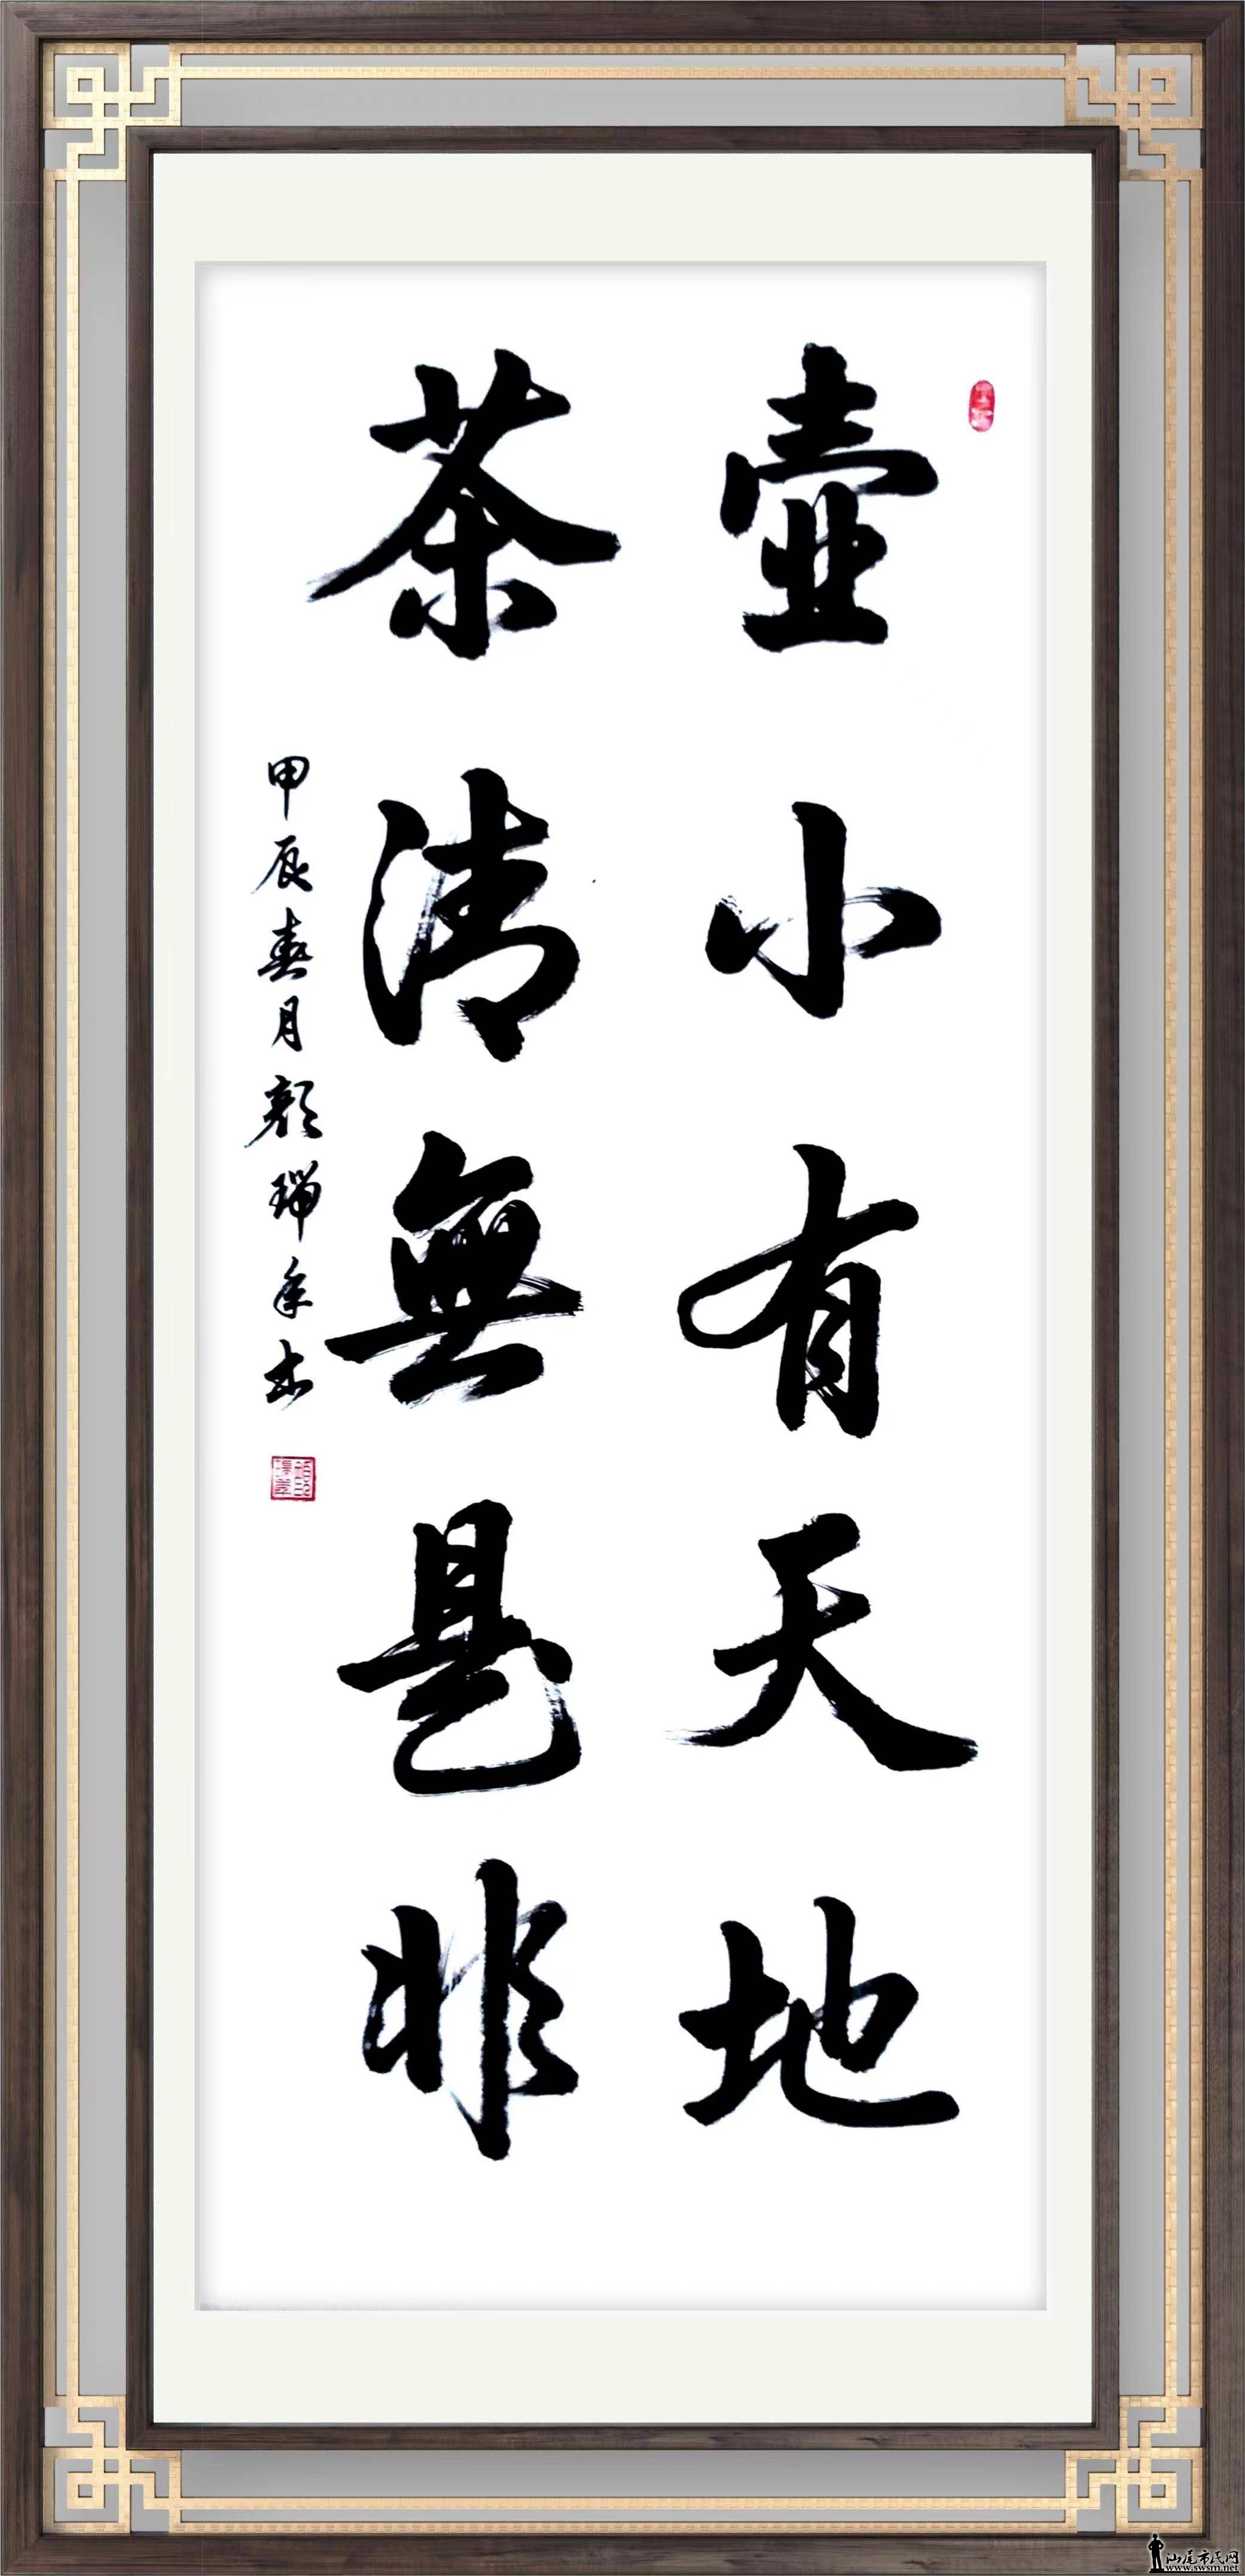 壺小有天地
茶清無是非
甲辰春月顏瑞年书
汕尾市民网
www.swsm.net